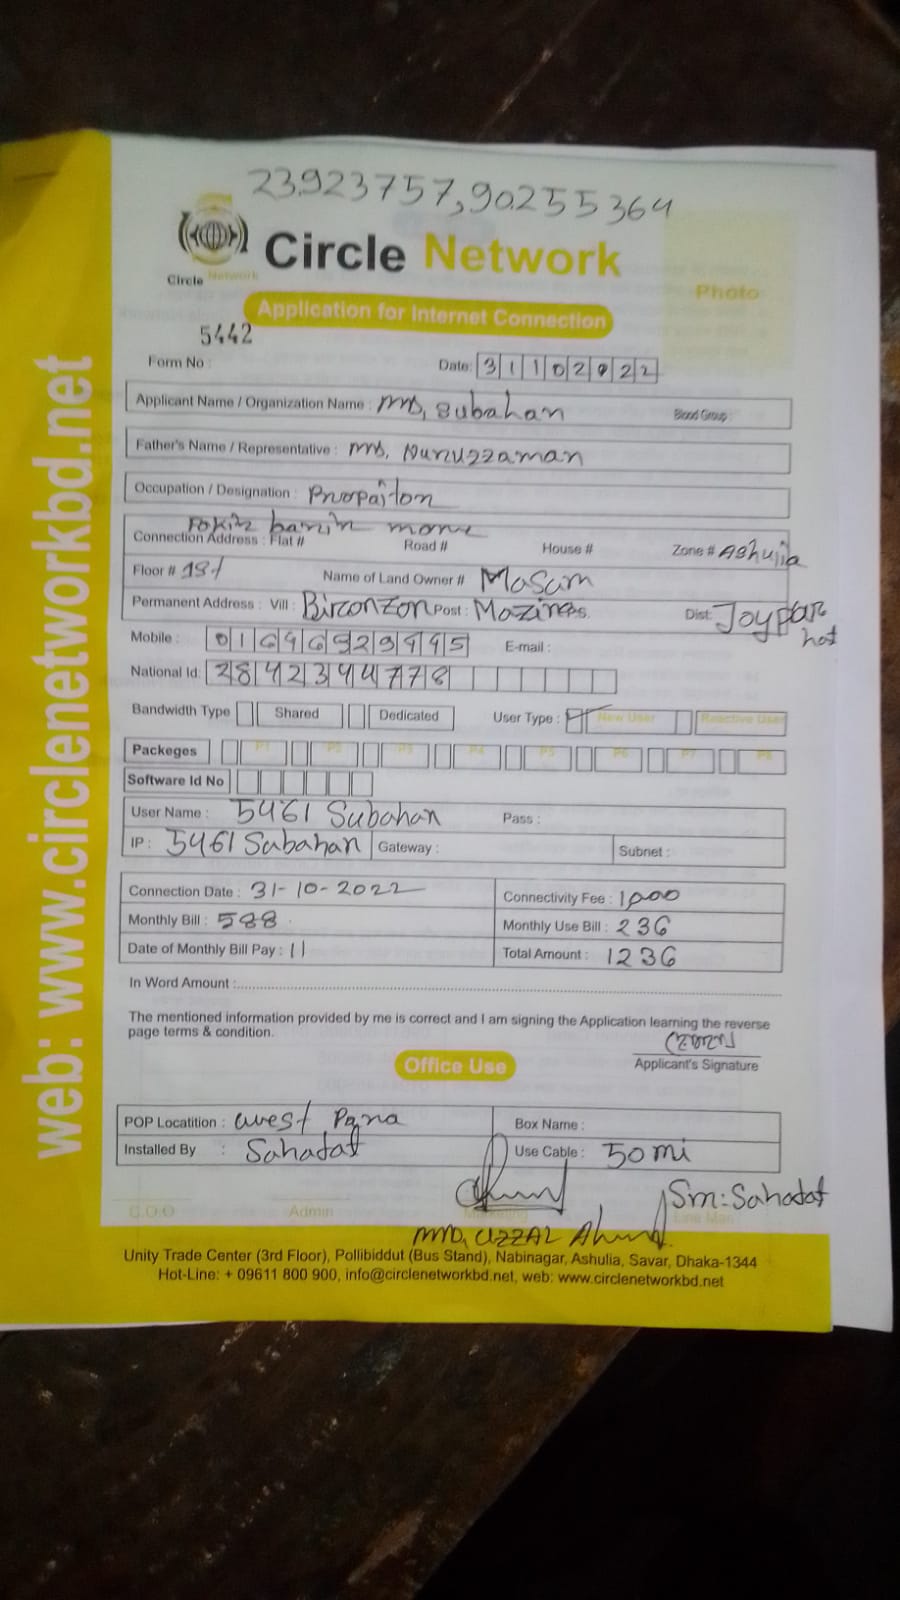 23.923757,90.255364
Circle Network
Circle Network
Photo
Application for Internet Connection
5442
Form No :
Date: 31102022
Applicant Name / Organization Name : MD, Subahan Blood Group :
Father's Name / Representative : MD, Nuruzzaman
Occupation / Designation :
Connection Address : Flat # Road # House # Zone # Ashulia
Floor # 1st Name of Land Owner # Masum
Permanent Address : Vill : Post : Dist: Joypur
hat
Mobile :
E-mail :
National Id:
Bandwidth Type Shared Dedicated User Type : New User Reactive User
Packeges P1 P2 P3 P4 P5 P6 P7 P8
Software Id No
User Name : 5461 Subahan Pass :
IP : 5461 Subahan Gateway : Subnet :
Connection Date : 31-10-2022 Connectivity Fee : 1000
Monthly Bill : 588 Monthly Use Bill : 236
Date of Monthly Bill Pay : 11 Total Amount : 1236
In Word Amount :
The mentioned information provided by me is correct and I am signing the Application learning the reverse
page terms & condition.
Applicant's Signature
Office Use
POP Locatition : west Para Box Name :
Installed By : Sahadat Use Cable : 50 mi
Sm: Sahadat
C.O.O Admin Marketing Line Man
MD, UZZAL Ahmed
Unity Trade Center (3rd Floor), Pollibiddut (Bus Stand), Nabinagar, Ashulia, Savar, Dhaka-1344
Hot-Line: + 09611 800 900, info@circlenetworkbd.net, web: www.circlenetworkbd.net
web: www.circlenetworkbd.net